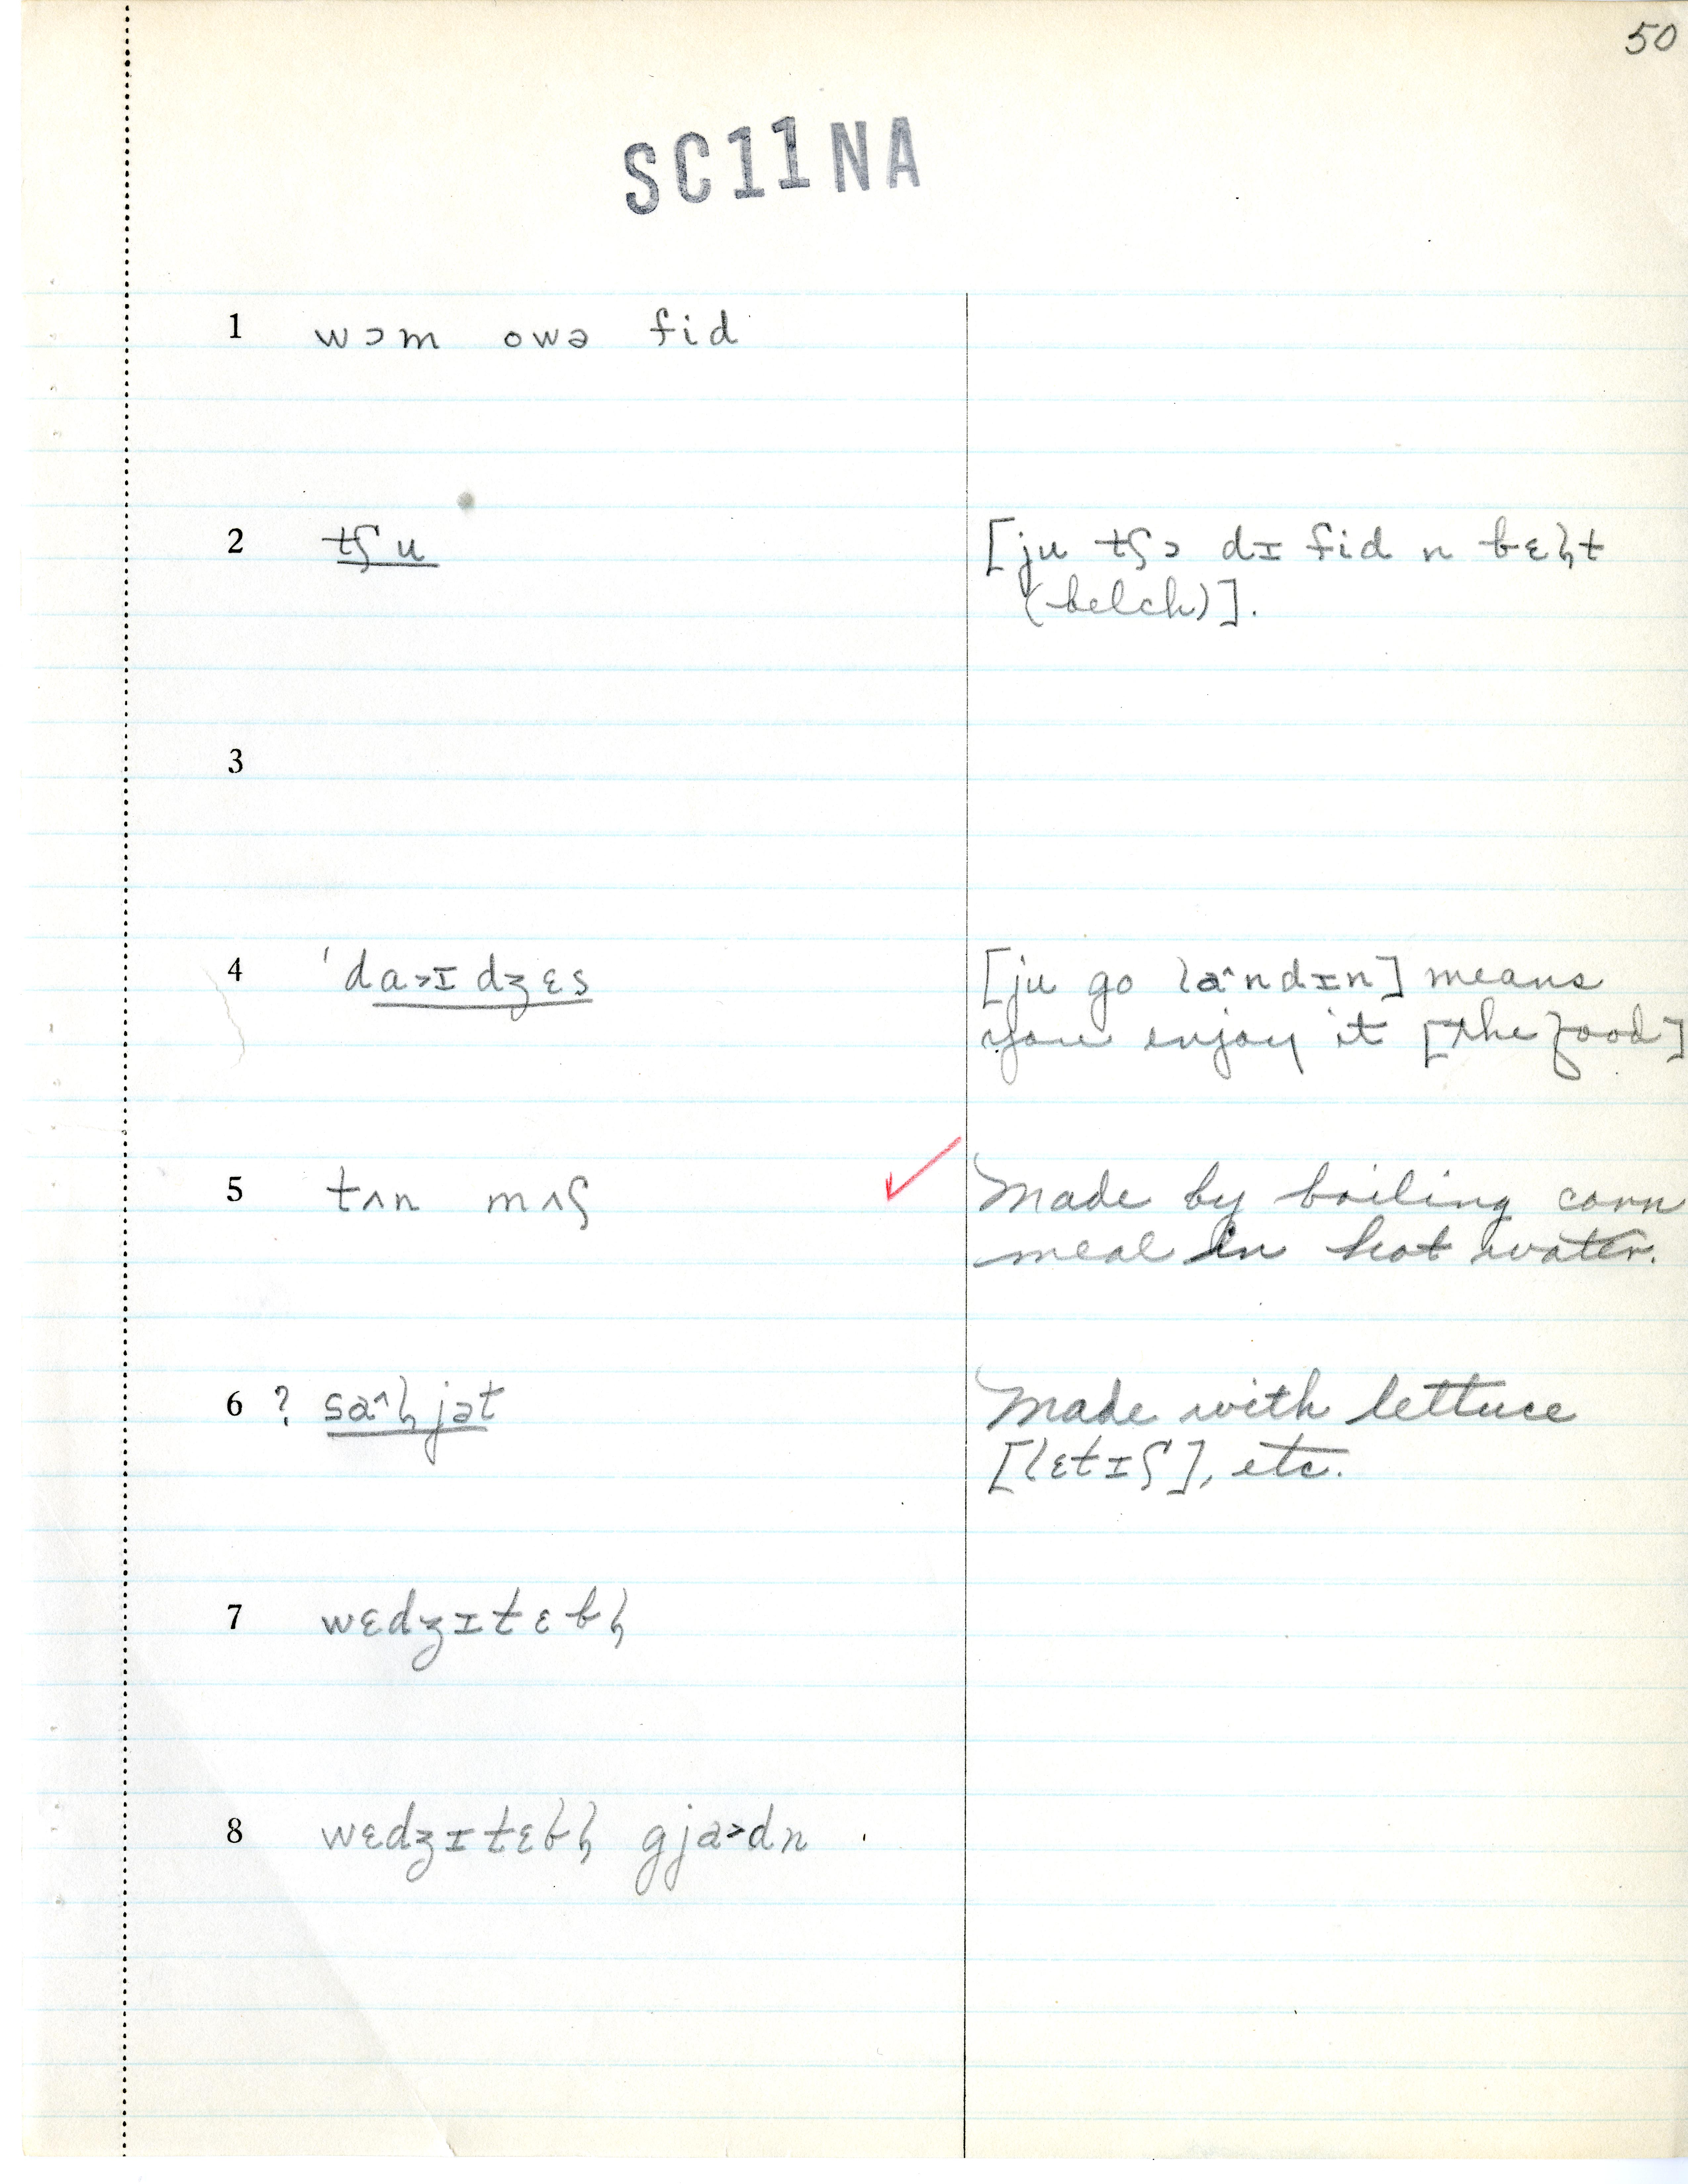 50
SC11NA
1 wɔm owə fid
2 tʃu [ju tʃɔ dɪ fid n bɛl̩t
(belch)].
3
4 ˈda˃ɪdʒɛs [ju go laˆndɪn] means
you enjoy it [the food]
5 tʌn mʌʃ ✓ Made by boiling corn
meal in hot water.
6 ? saˆl̩jət Made with lettuce
[lɛtɪʃ], etc.
7 wɛdʒɪtɛbl̩
8 wɛdʒɪtɛbl̩ gja˃dn